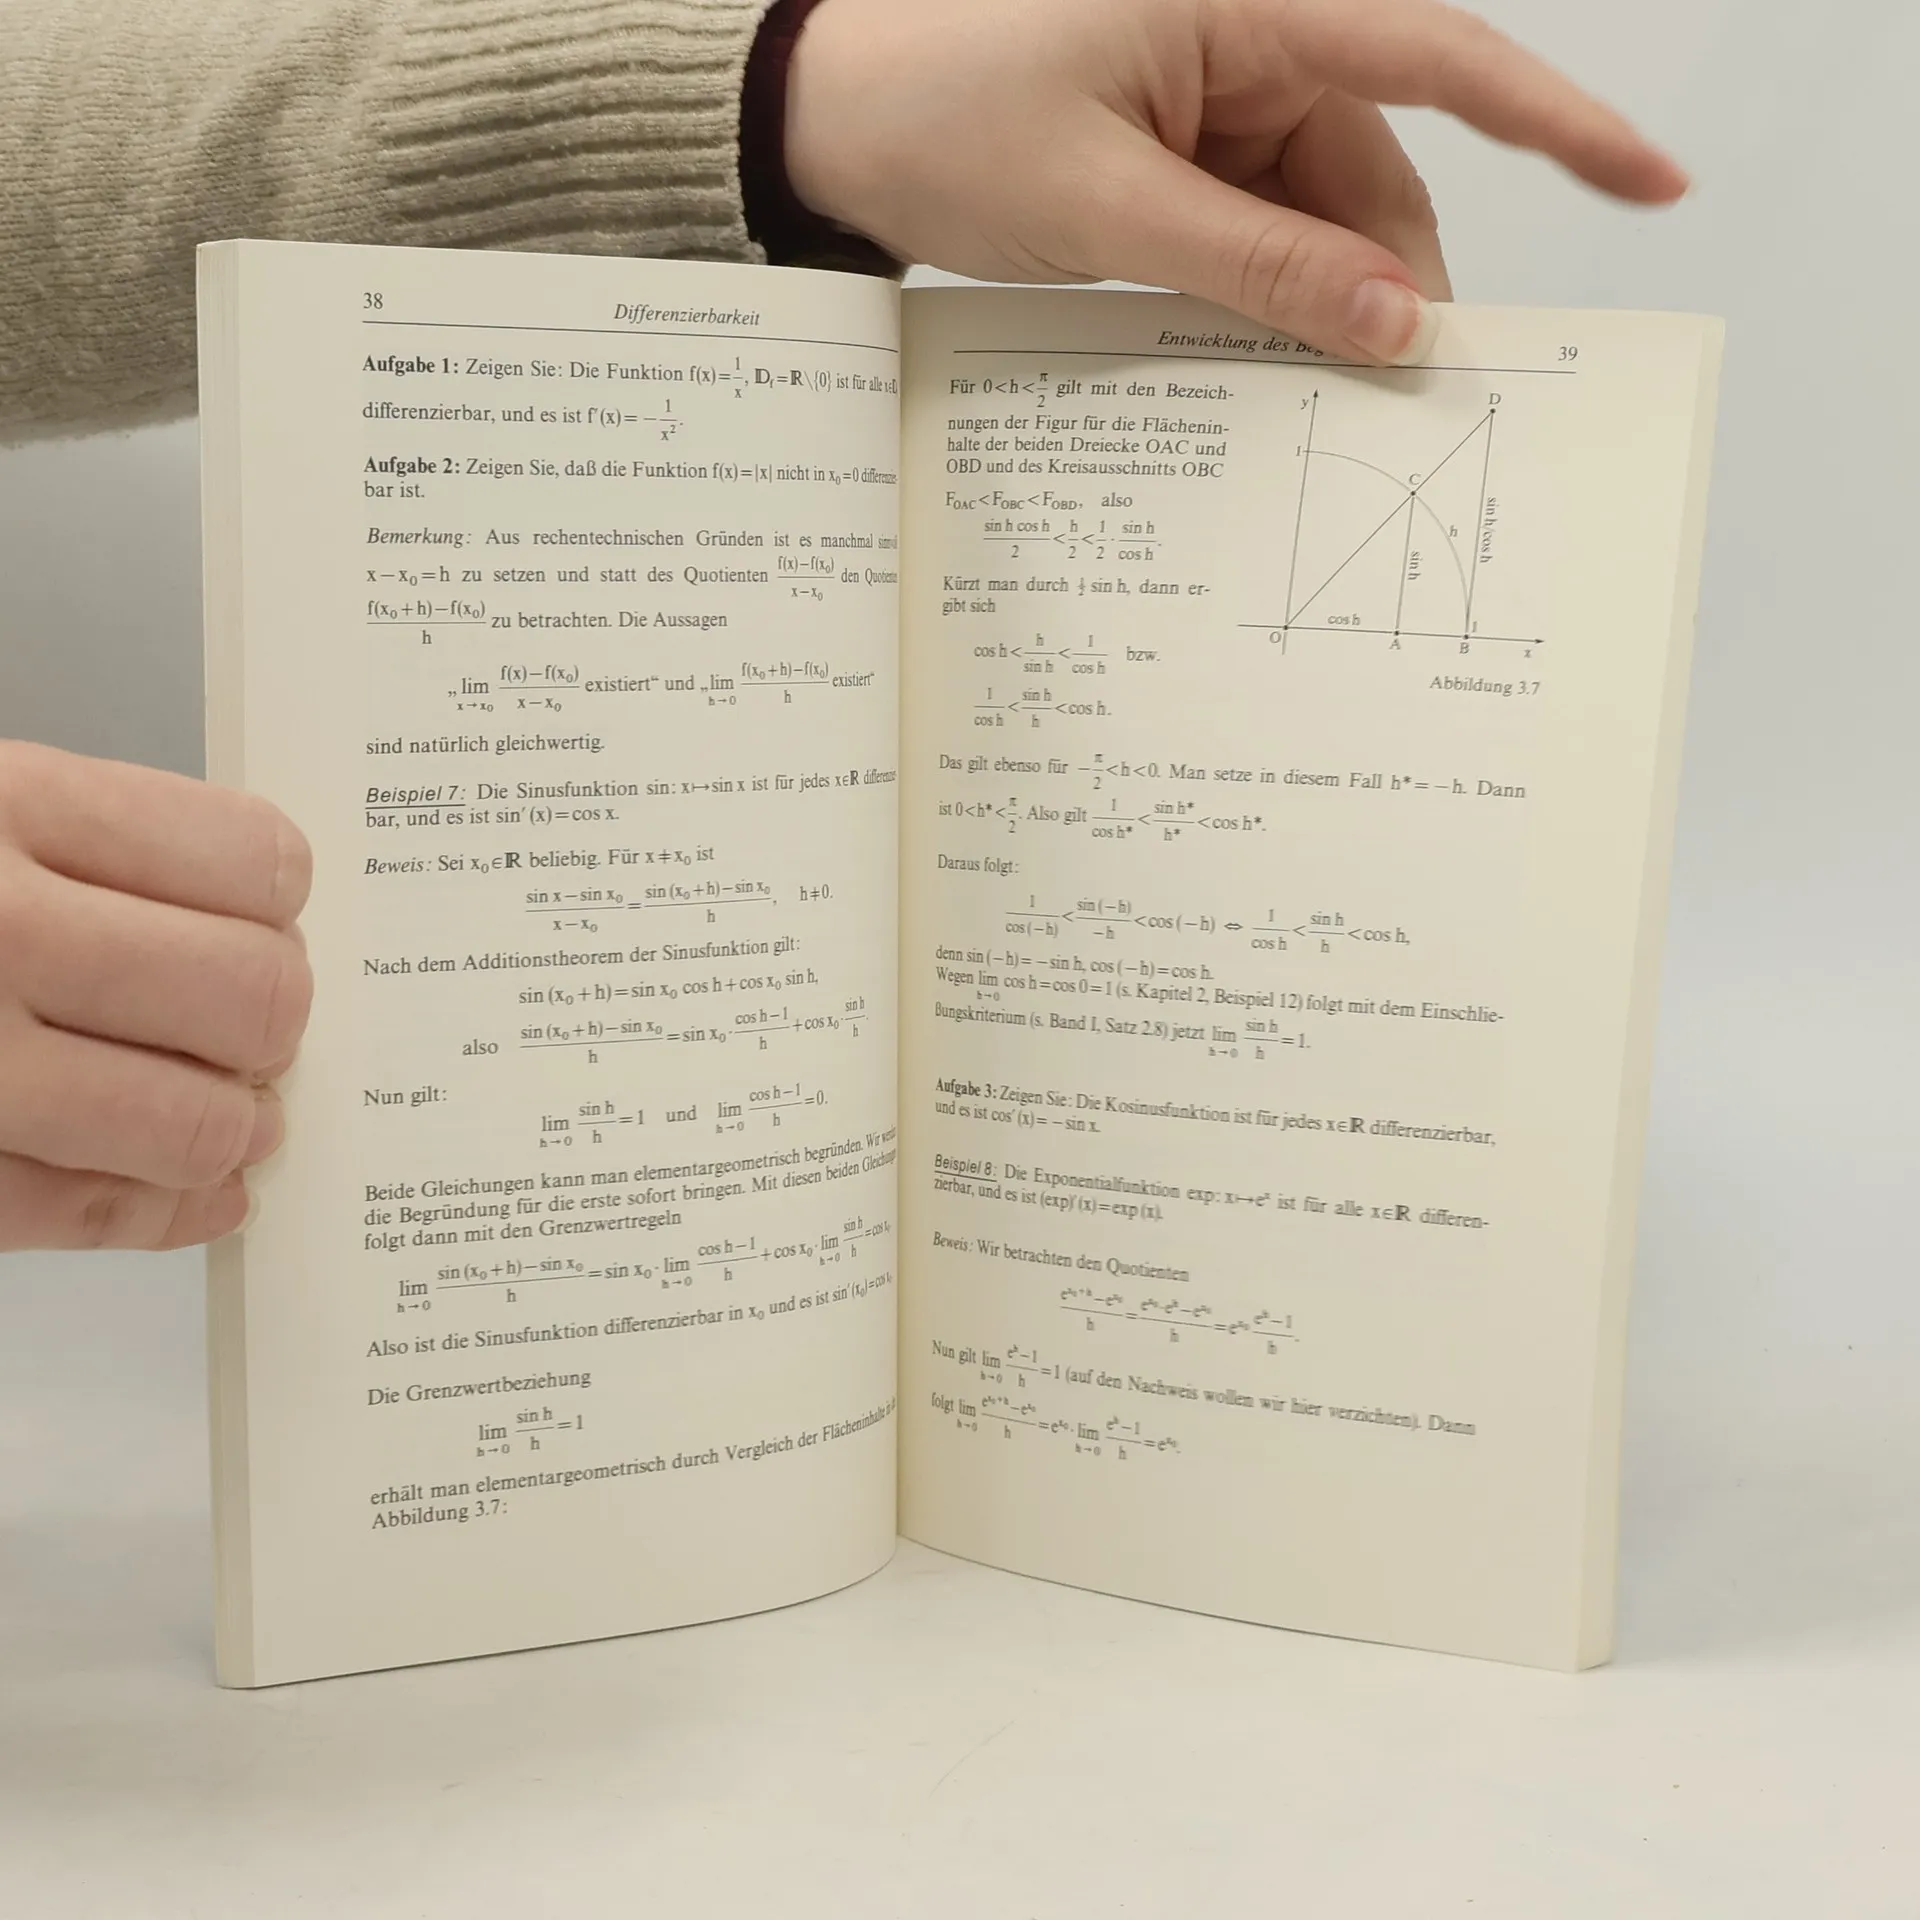 38
Differenzierbarkeit
Aufgabe 1: Zeigen Sie: Die Funktion f(x)=1/x, 𝔻f=ℝ\{0} ist für alle
differenzierbar, und es ist f'(x)=−1/x².
Aufgabe 2: Zeigen Sie, daß die Funktion f(x)=|x| nicht in x₀=0 differenzier-
bar ist.
Bemerkung: Aus rechentechnischen Gründen ist es manchmal
x−x₀=h zu setzen und statt des Quotienten (f(x)−f(x₀))/(x−x₀) den Quotienten
(f(x₀+h)−f(x₀))/h zu betrachten. Die Aussagen
„lim x→x₀ (f(x)−f(x₀))/(x−x₀) existiert“ und „lim h→0 (f(x₀+h)−f(x₀))/h existiert“
sind natürlich gleichwertig.
Beispiel 7: Die Sinusfunktion sin: x↦sin x ist für jedes x∈ℝ differenzier-
bar, und es ist sin′(x)=cos x.
Beweis: Sei x₀∈ℝ beliebig. Für x≠x₀ ist
(sin x−sin x₀)/(x−x₀)=(sin(x₀+h)−sin x₀)/h, h≠0.
Nach dem Additionstheorem der Sinusfunktion gilt:
sin(x₀+h)=sin x₀ cos h+cos x₀ sin h,
also (sin(x₀+h)−sin x₀)/h=sin x₀·(cos h−1)/h+cos x₀·sin h/h.
Nun gilt:
lim h→0 sin h/h=1 und lim h→0 (cos h−1)/h=0.
Beide Gleichungen kann man elementargeometrisch begründen. Wir werden
die Begründung für die erste sofort bringen. Mit diesen beiden Gleichungen
folgt dann mit den Grenzwertregeln
lim h→0 (sin(x₀+h)−sin x₀)/h=sin x₀·lim h→0 (cos h−1)/h+cos x₀·lim h→0 sin h/h=cos x₀
Also ist die Sinusfunktion differenzierbar in x₀ und es ist sin′(x₀)=cos x₀
Die Grenzwertbeziehung
lim h→0 sin h/h=1
erhält man elementargeometrisch durch Vergleich der Flächeninhalte in
Abbildung 3.7:
Entwicklung des
39
Für 0<h<π/2 gilt mit den Bezeich-
nungen der Figur für die Flächenin-
halte der beiden Dreiecke OAC und
OBD und des Kreisausschnitts OBC
F_OAC<F_OBC<F_OBD, also
sin h cos h/2<h/2<1/2·sin h/cos h.
Kürzt man durch ½ sin h, dann er-
gibt sich
cos h<h/sin h<1/cos h bzw.
1/cos h<sin h/h<cos h.
y
D
1
C
h
sin h
sin h/cos h
cos h
1
O
A
B
x
Abbildung 3.7
Das gilt ebenso für −π/2<h<0. Man setze in diesem Fall h*=−h. Dann
ist 0<h*<π/2. Also gilt 1/cos h*<sin h*/h*<cos h*.
Daraus folgt:
1/cos(−h)<sin(−h)/−h<cos(−h) ⇔ 1/cos h<sin h/h<cos h,
denn sin(−h)=−sin h, cos(−h)=cos h.
Wegen lim h→0 cos h=cos 0=1 (s. Kapitel 2, Beispiel 12) folgt mit dem Einschlie-
ßungskriterium (s. Band I, Satz 2.8) jetzt lim h→0 sin h/h=1.
Aufgabe 3: Zeigen Sie: Die Kosinusfunktion ist für jedes x∈ℝ differenzierbar,
und es ist cos′(x)=−sin x.
Beispiel 8: Die Exponentialfunktion exp: x↦eˣ ist für alle x∈ℝ differen-
zierbar, und es ist (exp)′(x)=exp(x).
Beweis: Wir betrachten den Quotienten
(e^(x₀+h)−e^x₀)/h=(e^x₀·e^h−e^x₀)/h=e^x₀·(e^h−1)/h.
Nun gilt lim h→0 (e^h−1)/h=1 (auf den Nachweis wollen wir hier verzichten). Dann
folgt lim h→0 (e^(x₀+h)−e^x₀)/h=e^x₀·lim h→0 (e^h−1)/h=e^x₀.